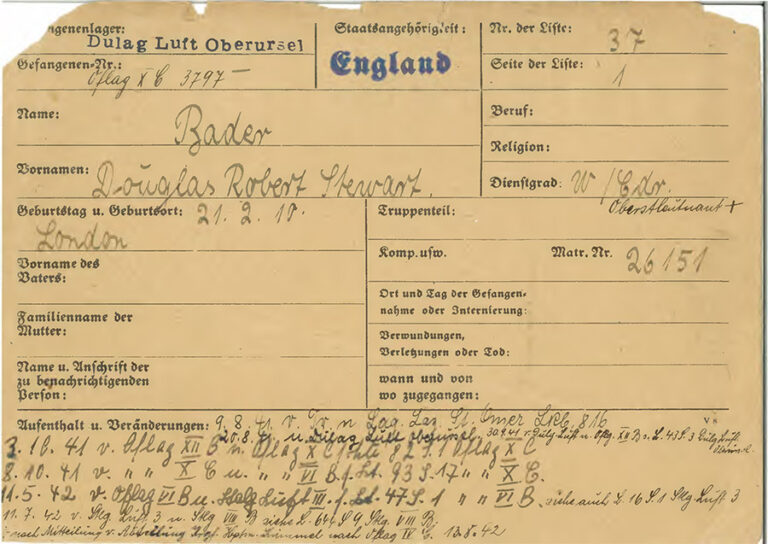 genenlager: Dulag Luft Oberursel
Staatsangehörigkeit: England
Nr. der Liste: 37
Gefangenen-Nr.: Oflag X C 3797 –
Seite der Liste: 1
Name: Bader
Beruf:
Religion:
Vornamen: Douglas Robert Stewart.
Dienstgrad: W/Cdr.
Oberstleutnant +
Geburtstag u. Geburtsort: 21. 2. 10.
London
Truppenteil:
Komp. usw.
Matr. Nr. 26151
Vorname des
Vaters:
Ort und Tag der Gefangen-
nahme oder Internierung:
Familienname der
Mutter:
Verwundungen,
Verletzungen oder Tod:
Name u. Anschrift der
zu benachrichtigenden
Person:
wann und von
wo zugegangen:
Aufenthalt u. Veränderungen: 9. 8. 41 v. n Laz. St. Omer 816
20.8. n. Dulag Luft Oberursel 30.9.41 Dulag Luft n. Oflag XII B L. 43 S. 3 Dulag Luft
3. 10. 41 v. Oflag XII B n. Oflag X C S. 1 Oflag X C
8. 10. 41 v. " " X C n. " " VI B L. 93 S. 17 " " X C.
11. 5. 42 v. Oflag VI B n. Luft III. 47 S. 1 " " VI B. siehe auch L. 16 S. 1 Luft 3
11. 7. 42 v. Luft 3 n. VIII B siehe L. 64 S 9 VIII B.
nach Mitteilung v. Abteilung nach Oflag IV C. 13. 8. 42